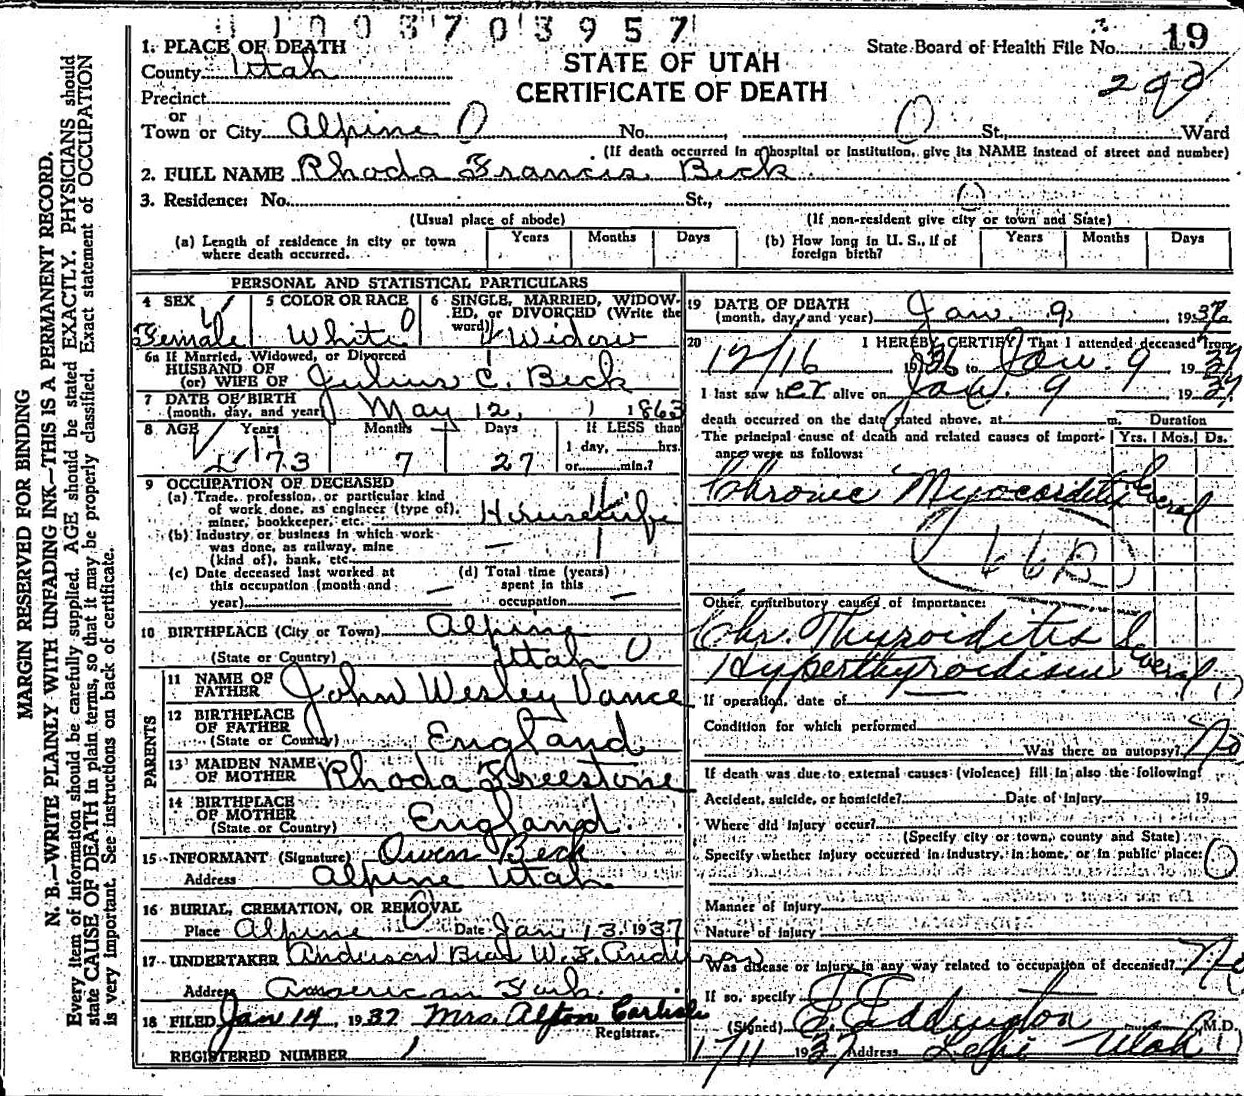 1003703957
1. PLACE OF DEATH
County Utah
STATE OF UTAH
CERTIFICATE OF DEATH
State Board of Health File No. 19
290
Precinct
or
Town or City Alpine 0 No. , 0 St., Ward
(If death occurred in a hospital or institution, give its NAME instead of street and number)
2. FULL NAME Rhoda Francis Beck
3. Residence: No. St., 0
(Usual place of abode) (If non-resident give city or town and State)
(a) Length of residence in city or town where death occurred. Years Months Days (b) How long in U. S., if of foreign birth? Years Months Days
PERSONAL AND STATISTICAL PARTICULARS
4 SEX Female
5 COLOR OR RACE White
6 SINGLE, MARRIED, WIDOWED, or DIVORCED (Write the word) Widow
6a If Married, Widowed, or Divorced
HUSBAND OF
(or) WIFE OF Julius C. Beck
7 DATE OF BIRTH
(month, day, and year) May 12, 1863
8 AGE Years 73 Months 7 Days 27 If LESS than 1 day, hrs. or min.?
9 OCCUPATION OF DECEASED
(a) Trade, profession, or particular kind of work done, as engineer (type of), miner, bookkeeper, etc. Housewife
(b) Industry or business in which work was done, as railway, mine (kind of), bank, etc. —
(c) Date deceased last worked at this occupation (month and year) —
(d) Total time (years) spent in this occupation —
10 BIRTHPLACE (City or Town) Alpine
(State or Country) Utah 0
PARENTS
11 NAME OF FATHER John Wesley Vance
12 BIRTHPLACE OF FATHER
(State or Country) England
13 MAIDEN NAME OF MOTHER Rhoda Freestone
14 BIRTHPLACE OF MOTHER
(State or Country) England
15 INFORMANT (Signature) Owen Beck
Address Alpine Utah
16 BURIAL, CREMATION, OR REMOVAL
Place Alpine Date Jan 13, 1937
17 UNDERTAKER Anderson W. F. Anderson
Address American Fork
18 FILED Jan 14, 1937 Mrs. Afton Carlisle
Registrar.
REGISTERED NUMBER 1
19 DATE OF DEATH
(month, day, and year) Jan. 9, 1937
20 I HEREBY CERTIFY That I attended deceased from
12/16 1936 to Jan. 9 1937
I last saw her alive on Jan. 9 1937
death occurred on the date stated above, at m. Duration
The principal cause of death and related causes of importance were as follows: Yrs. Mos. Ds.
Chronic Myocarditis Several
66B
Other contributory causes of importance:
Chr. Thyroiditis
Hyperthyroidism Several
If operation, date of
Condition for which performed
Was there an autopsy? No
If death was due to external causes (violence) fill in also the following:
Accident, suicide, or homicide? Date of injury 19
Where did injury occur?
(Specify city or town, county and State)
Specify whether injury occurred in industry, in home, or in public place: 0
Manner of Injury
Nature of injury
Was disease or injury in any way related to occupation of deceased? No
If so, specify
(Signed) Eddington M.D.
1/11 1937 Address Lehi Utah
MARGIN RESERVED FOR BINDING
N. B.—WRITE PLAINLY WITH UNFADING INK—THIS IS A PERMANENT RECORD.
Every item of information should be carefully supplied. AGE should be stated EXACTLY. PHYSICIANS should
state CAUSE OF DEATH in plain terms, so that it may be properly classified. Exact statement of OCCUPATION
is very important. See instructions on back of certificate.